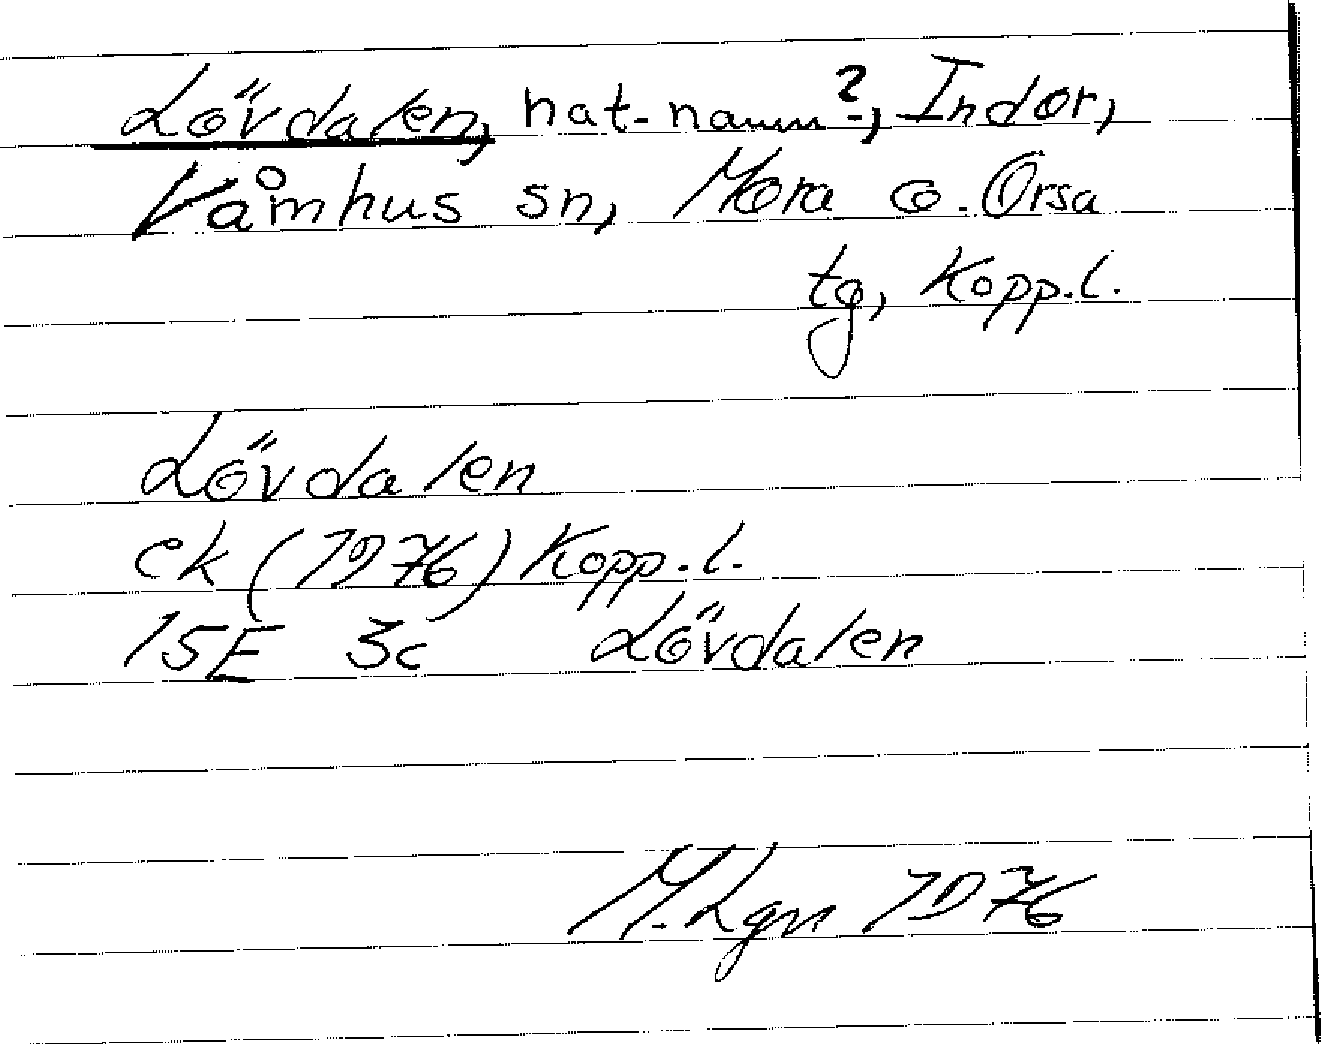 Lövdalen, nat-namn?, Indor,
Våmhus sn, Mora o. Orsa
tg, Kopp.l.
Lövdalen
ek (1976) Kopp.l.
15E 3c Lövdalen
M. Lgn 1976